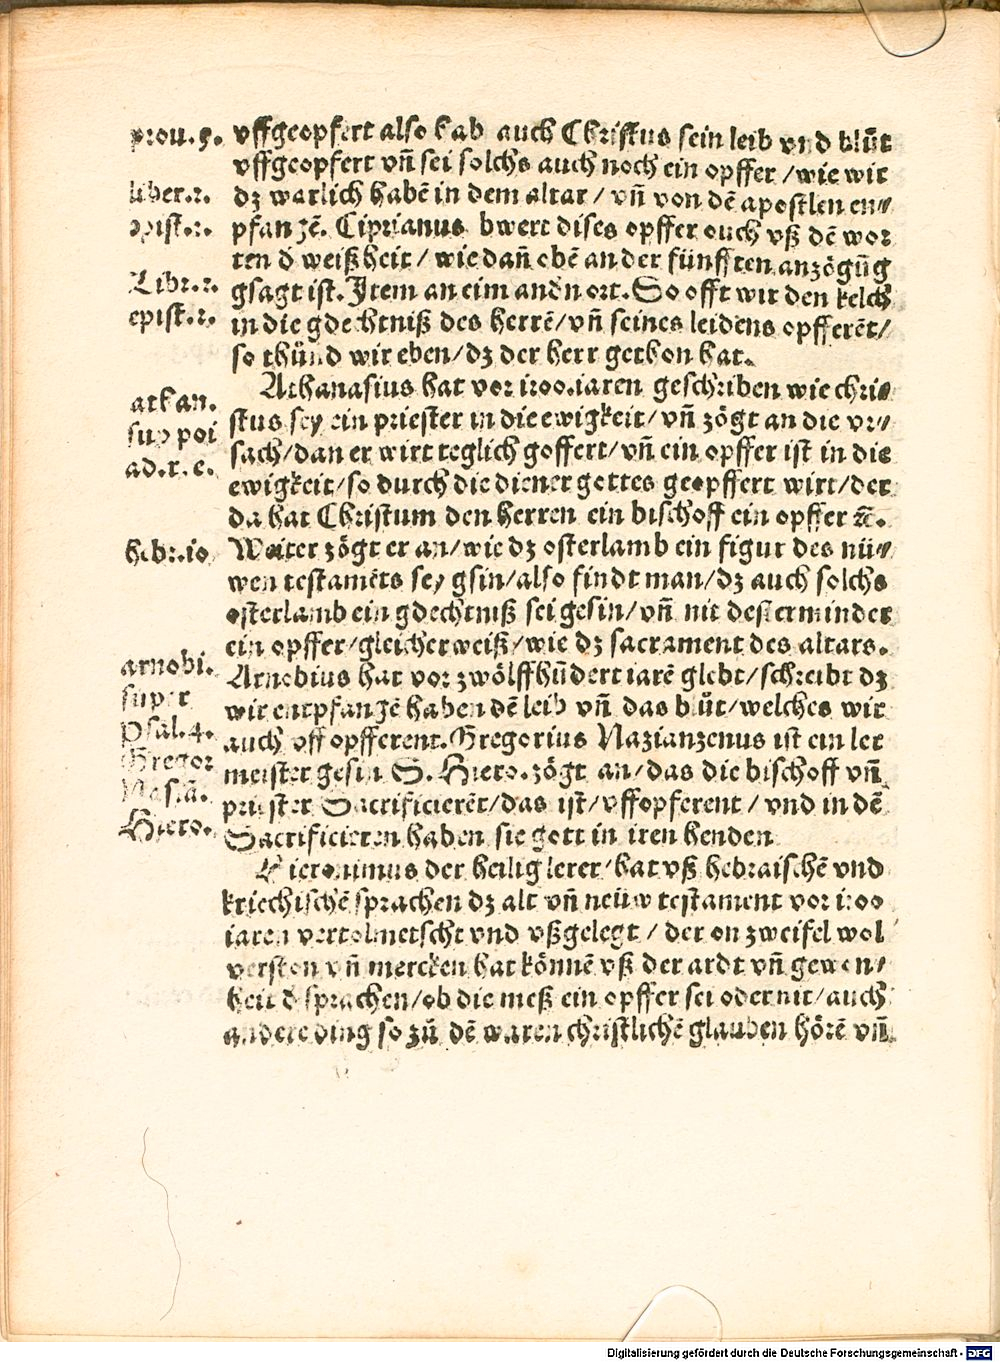 prou. 9.
vffgeopfert also hab auch Christus sein leib vnd blůt
vffgeopfert vñ sei solchs auch noch ein opffer / wie wir
liber. 2.
dz warlich habẽ in dem altar / vñ von dẽ apostlen en⸗
epist. 2.
pfangẽ. Ciprianus bwert dises opffer ouch vß dẽ wor
ten d weißheit / wie dañ obẽ an der fünfften anzögũg
Libr. 2.
gsagt ist. Item an eim andn ort. So offt wir den kelch
epist. 2.
in die gdechtniß des herrẽ / vñ seines leidens opfferẽt /
so thůnd wir eben / dz der herr gethon hat.
Athanasius hat vor 1200. iaren geschriben wie chri⸗
athan.
stus sey ein priester in die ewigkeit / vñ zögt an die vr⸗
sup poi
sach / dan er wirt teglich goffert / vñ ein opffer ist in die
ad. r. e.
ewigkeit / so durch die diener gottes geopffert wirt / der
da hat Christum den herren ein bischoff ein opffer ꝛc̃.
hebr. 10
Weiter zögt er an / wie dz osterlamb ein figur des nü⸗
wen testamẽts sey gsin / also findt man / dz auch solchs
osterlamb ein gdechtniß sei gesin / vñ nit desterminder
ein opffer / gleicherweiß / wie dz sacrament des altars.
arnobi.
Arnobius hat vor zwölffhũdert iarẽ glebt / schreibt dz
super
wir entpfangẽ haben dẽ leib vñ das blůt / welches wir
Psal. 4.
auch vff opfferent. Gregorius Nazianzenus ist ein ler
Gregor
meister gesin S. Hiero. zögt an / das die bischoff vñ
Nasiã.
priester Sacrificierẽt / das ist / vffopferent / vnd in dẽ
Hiero.
Sacrificieren haben sie gott in iren henden
Hieronimus der heilig lerer / hat vß hebraischẽ vnd
kriechischẽ sprachen dz alt vñ neüw testament vor 1200
iaren vertolmetscht vnd vßgelegt / der on zweifel wol
verston vñ mercken hat könnẽ vß der ardt vñ gewon⸗
heit d sprachen / ob die meß ein opffer sei oder nit / auch
andere ding so zů dẽ waren christlichẽ glauben hörẽ vñ
Digitalisierung gefördert durch die Deutsche Forschungsgemeinschaft - DFG